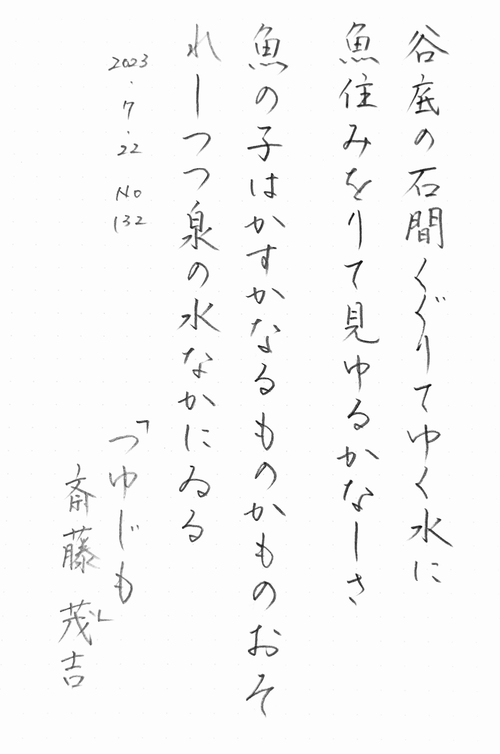 谷底の石間くぐりてゆく水に
魚住みをりて見ゆるかなしさ
魚の子はかすかなるものかものおそ
れしつつ泉の水なかにゐる
2023.7.22 No132
「つゆじも」
斎藤茂吉